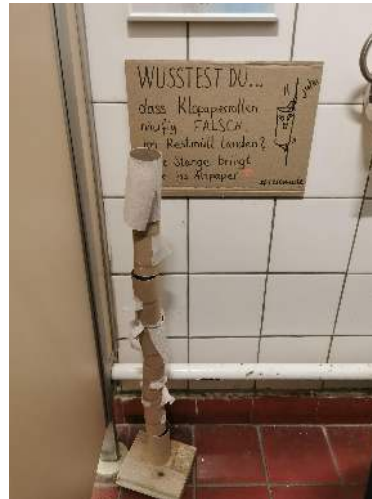 WUSSTEST DU...
dass Klopapierrollen
häufig FALSCH
im Restmüll landen?
Stange bringt
ins Altpapier